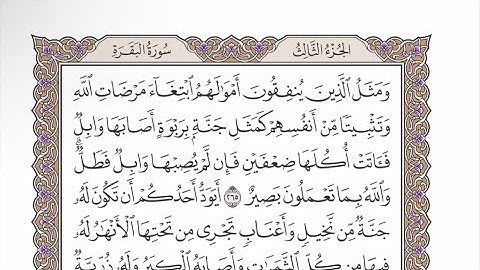 الجُزْءُ الثَّالِثُ سُورَةُ البَقَرَةِ
وَمَثَلُ ٱلَّذِينَ يُنفِقُونَ أَمْوَٰلَهُمُ ٱبْتِغَآءَ مَرْضَاتِ ٱللَّهِ
وَتَثْبِيتًا مِّنْ أَنفُسِهِمْ كَمَثَلِ جَنَّةٍۭ بِرَبْوَةٍ أَصَابَهَا وَابِلٌ
فَـَٔاتَتْ أُكُلَهَا ضِعْفَيْنِ فَإِن لَّمْ يُصِبْهَا وَابِلٌ فَطَلٌّ ۗ
وَٱللَّهُ بِمَا تَعْمَلُونَ بَصِيرٌ ٢٦٥ أَيَوَدُّ أَحَدُكُمْ أَن تَكُونَ لَهُۥ
جَنَّةٌ مِّن نَّخِيلٍ وَأَعْنَابٍ تَجْرِى مِن تَحْتِهَا ٱلْأَنْهَٰرُ لَهُۥ
فِيهَا مِن كُلِّ ٱلثَّمَرَٰتِ وَأَصَابَهُ ٱلْكِبَرُ وَلَهُۥ ذُرِّيَّةٌ